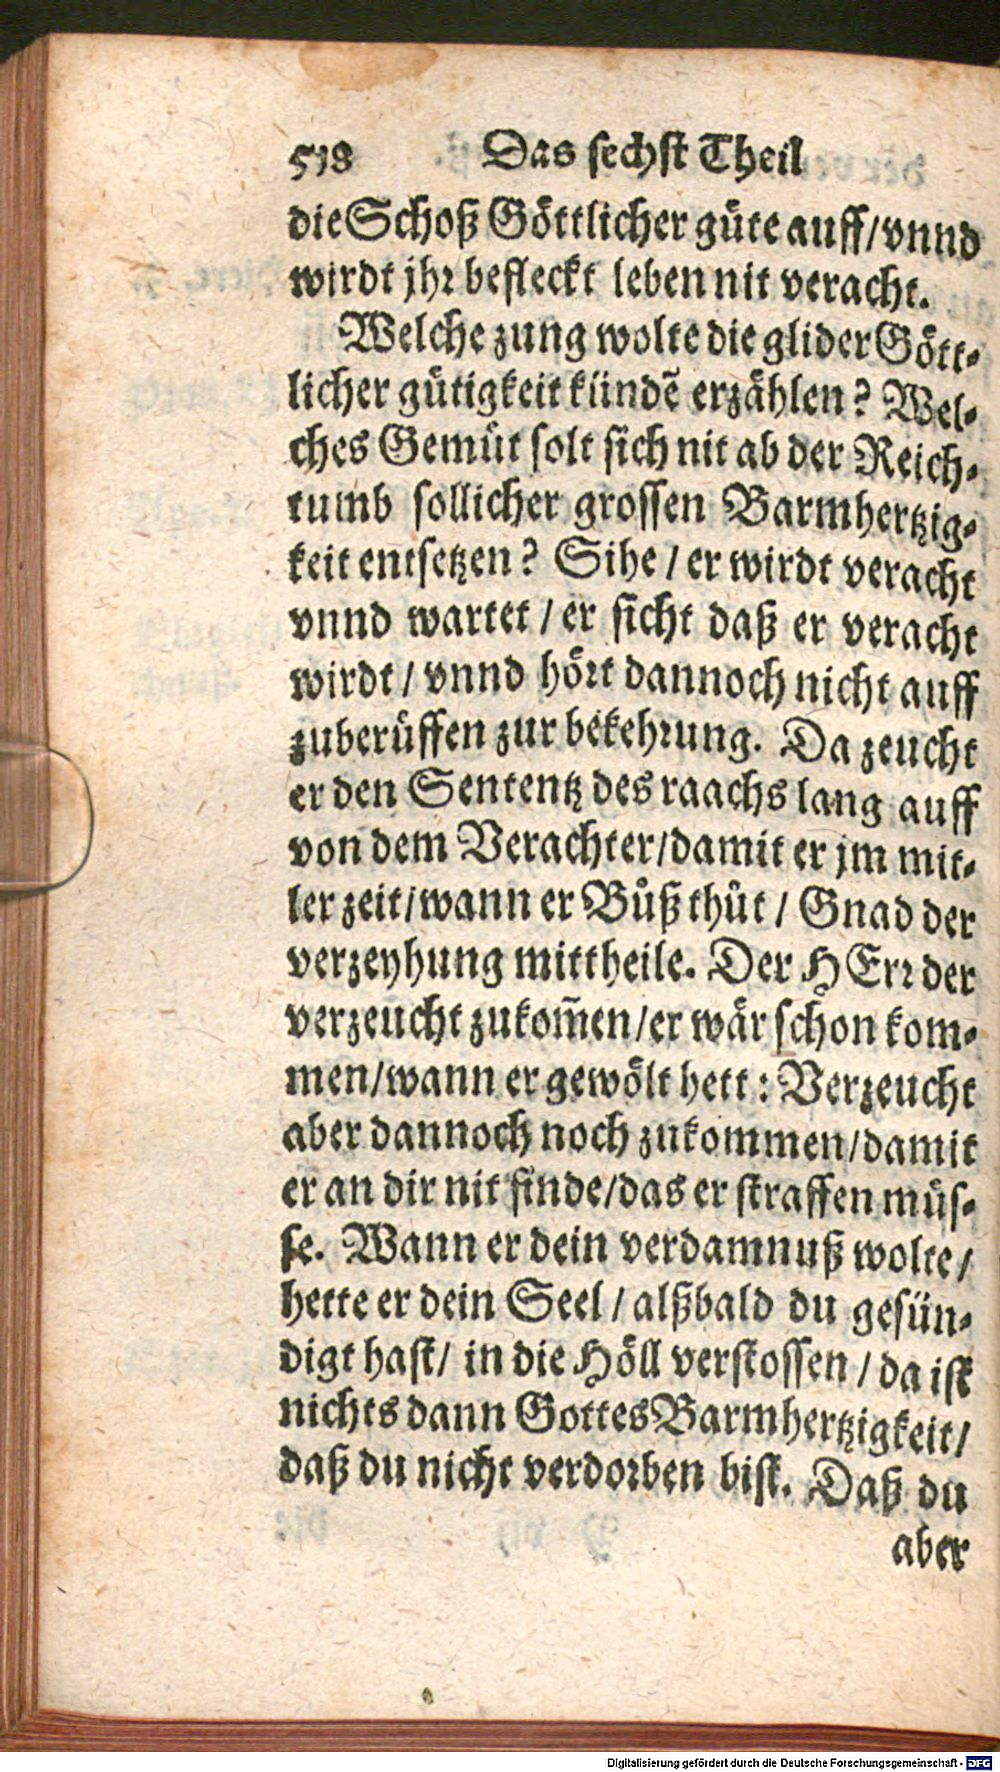 518 Das sechst Theil
die Schoß Göttlicher güte auff/vnnd
wirdt jhr befleckt leben nit veracht.
Welche zung wolte die glider Gött-
licher gütigkeit kündẽ erzählen? Wel-
ches Gemüt solt sich nit ab der Reich-
tumb sollicher grossen Barmhertzig-
keit entsetzen? Sihe / er wirdt veracht
vnnd wartet / er sicht daß er veracht
wirdt / vnnd hört dannoch nicht auff
zuberüffen zur bekehrung. Da zeucht
er den Sententz des raachs lang auff
von dem Verachter/damit er jm mit-
ler zeit/wann er Bůß thüt / Gnad der
verzeyhung mittheile. Der HErr der
verzeucht zukom̃en/er wär schon kom-
men/wann er gewölt hett: Verzeucht
aber dannoch noch zukommen/damit
er an dir nit finde/das er straffen müs-
se. Wann er dein verdamnuß wolte /
hette er dein Seel / alßbald du gesün-
digt hast/ in die Höll verstossen / da ist
nichts dann Gottes Barmhertzigkeit/
daß du nicht verdorben bist. Daß du
aber
Digitalisierung gefördert durch die Deutsche Forschungsgemeinschaft - DFG